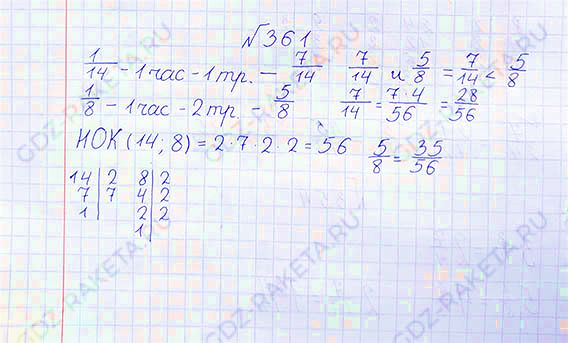 №361
1/14 - 1 час - 1 тр. - 7/14   7/14 и 5/8 = 7/14 < 5/8
1/8 - 1 час - 2 тр. - 5/8   7/14 = 7·4/56 = 28/56
НОК (14; 8) = 2·7·2·2 = 56   5/8 = 35/56
14 | 2   8 | 2
7 | 7   4 | 2
1 |   2 | 2
1 |
GDZ-RAKETA.RU